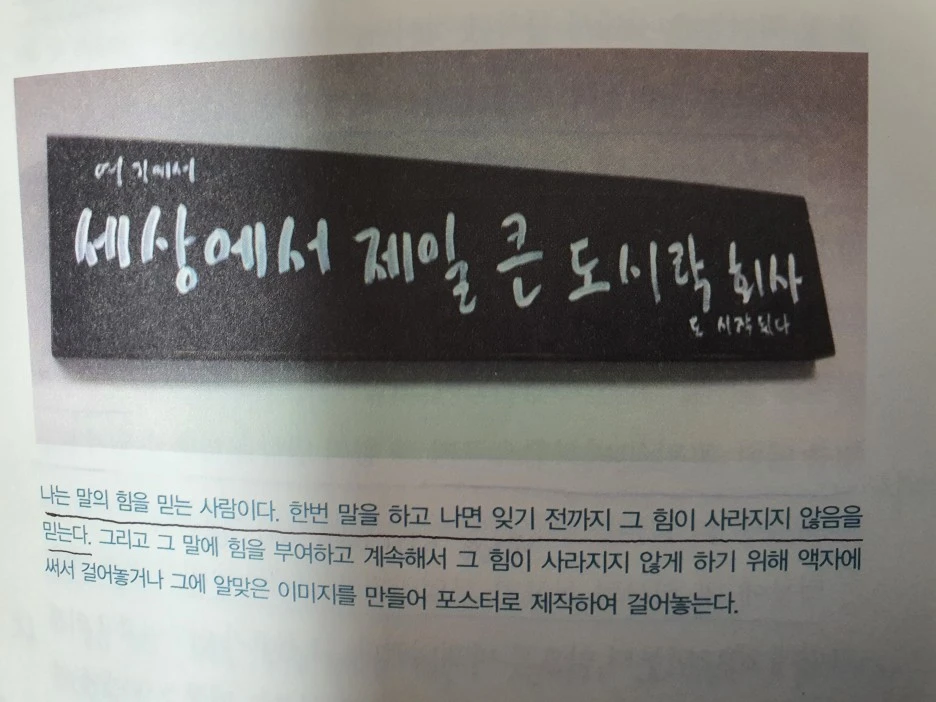 여기에서
세상에서 제일 큰 도시락 회사
도 시작됐다
나는 말의 힘을 믿는 사람이다. 한번 말을 하고 나면 잊기 전까지 그 힘이 사라지지 않음을
믿는다. 그리고 그 말에 힘을 부여하고 계속해서 그 힘이 사라지지 않게 하기 위해 액자에
써서 걸어놓거나 그에 알맞은 이미지를 만들어 포스터로 제작하여 걸어놓는다.